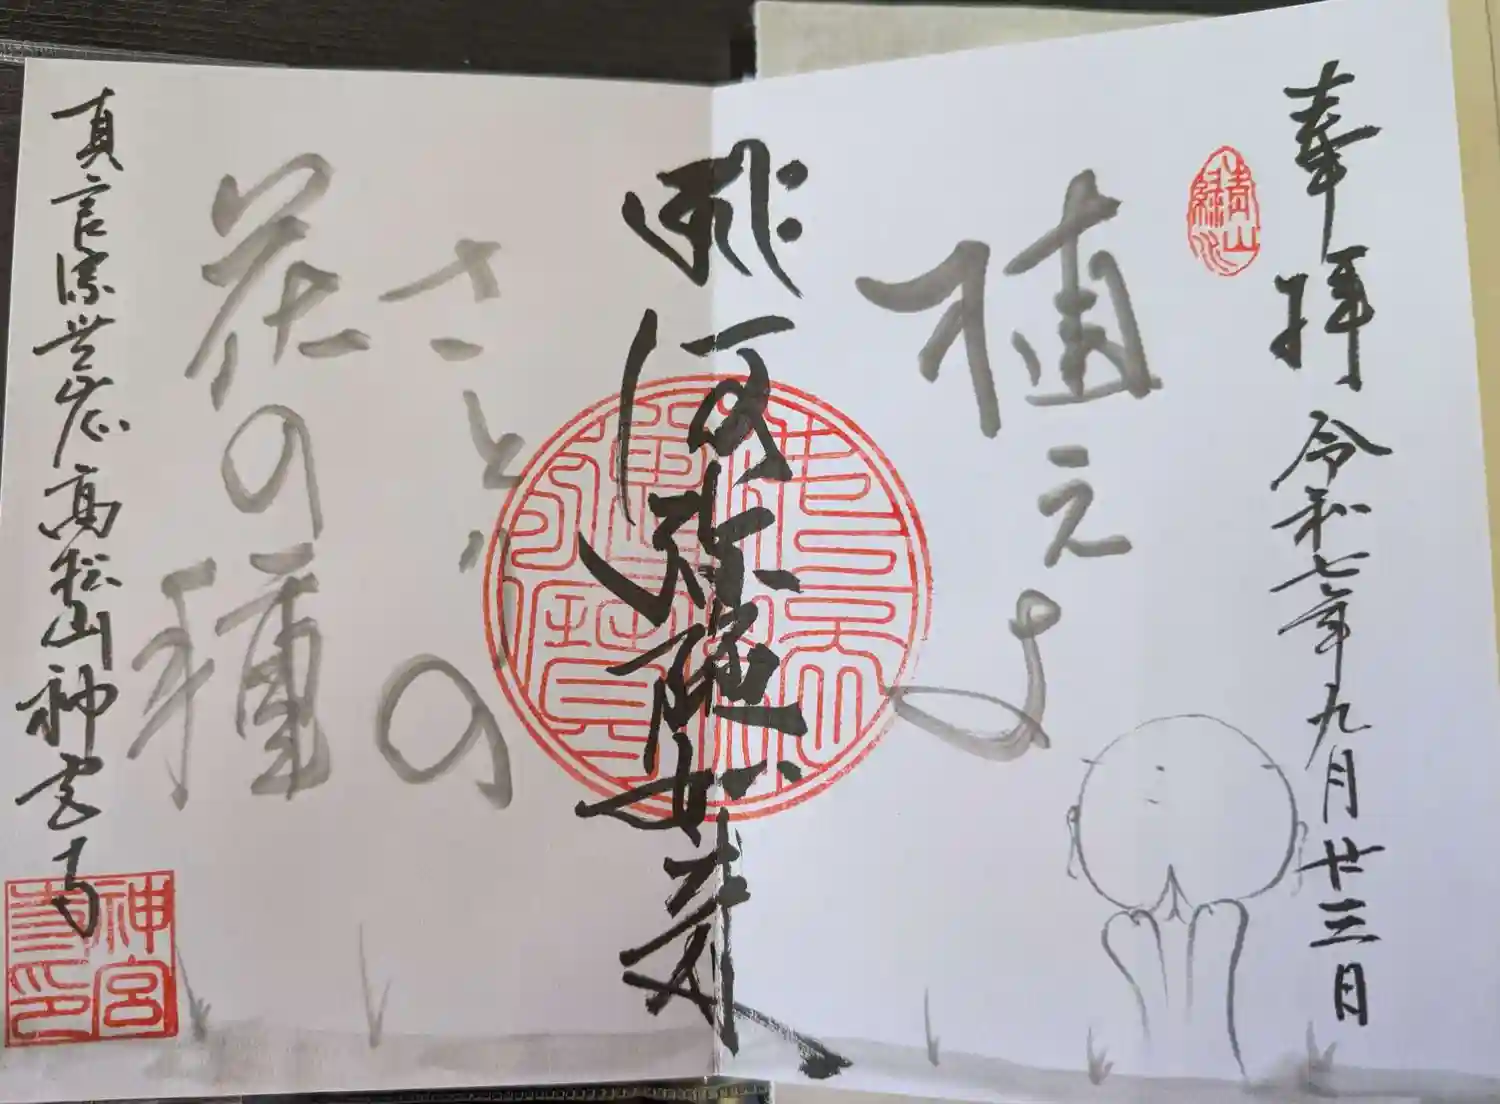 奉拝 令和七年九月廿三日
青山緑水
植えよ
阿弥陀如来
さとりの
花の種
真言宗
高松山神宮寺
神宮寺印